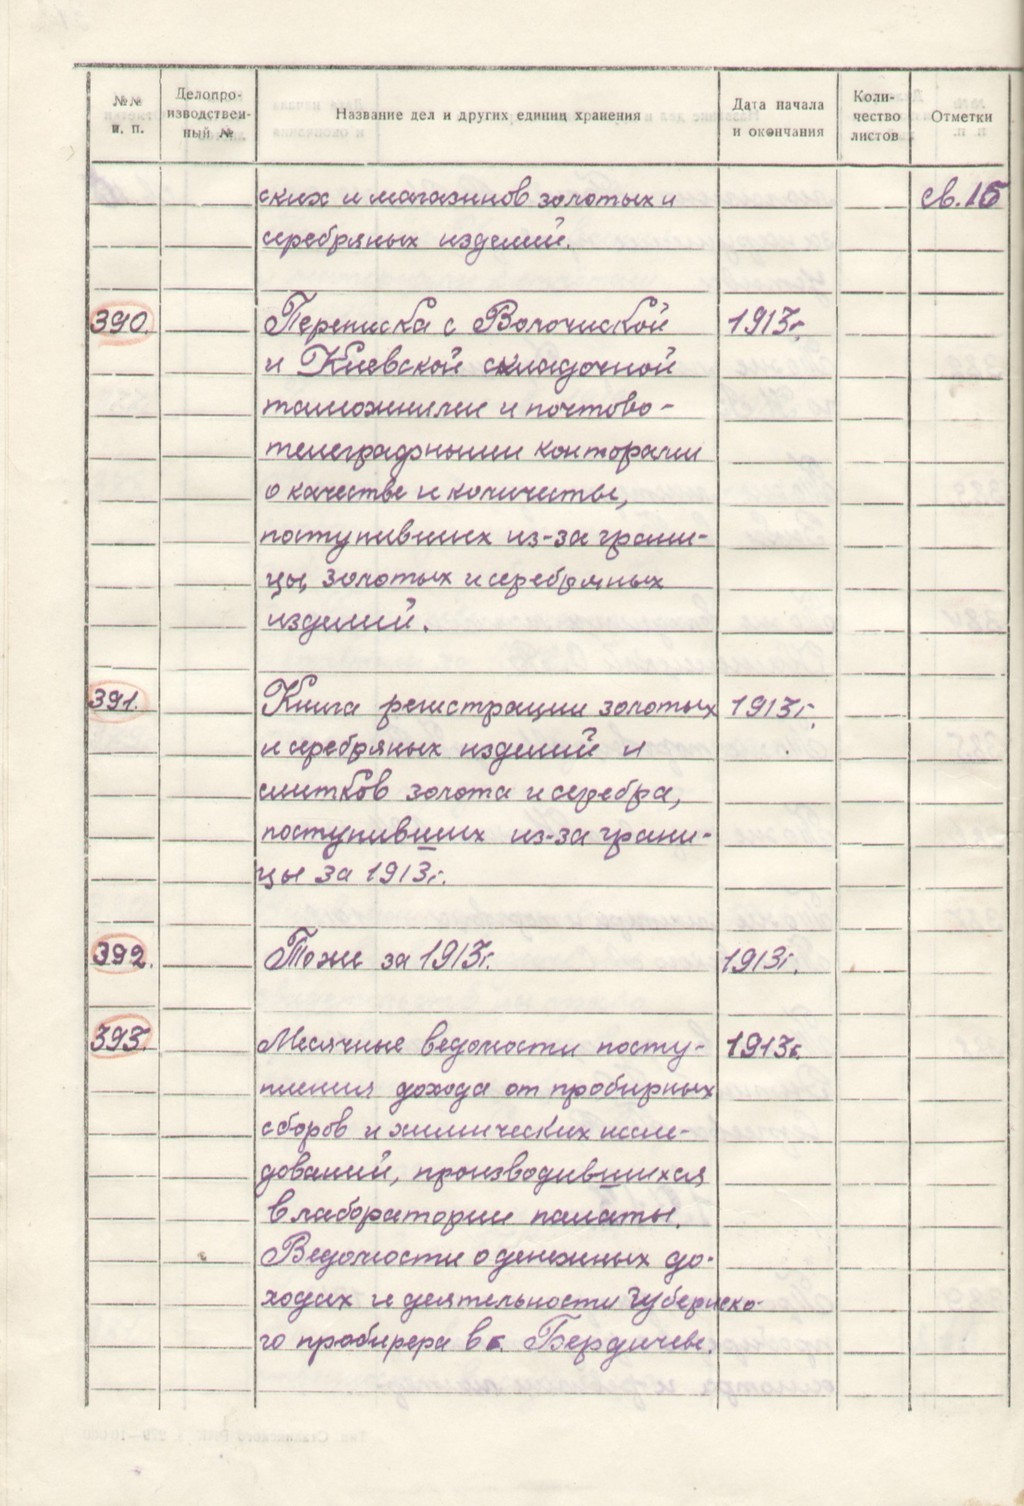 №№ п. п.
Делопроизводственный №
Название дел и других единиц хранения
Дата начала и окончания
Количество листов
Отметки
ских и магазинов золотых и
св. 15
серебряных изделий.
390. Переписка с Волочиской 1913г.
и Киевской складочной
таможнями и почтово-
телеграфными конторами
о качестве и количестве,
поступивших из-за грани-
цы, золотых и серебряных
изделий.
391. Книга регистрации золотых 1913г.
и серебряных изделий и
слитков золота и серебра,
поступивших из-за грани-
цы за 1913г.
392. Тоже за 1913г. 1913г.
393. Месячные ведомости посту- 1913г.
пления дохода от пробирных
сборов и химических иссле-
дований, производившихся
в лаборатории палаты.
Ведомости о денежных до-
ходах и деятельности губернско-
го пробирера в г. Бердичеве.